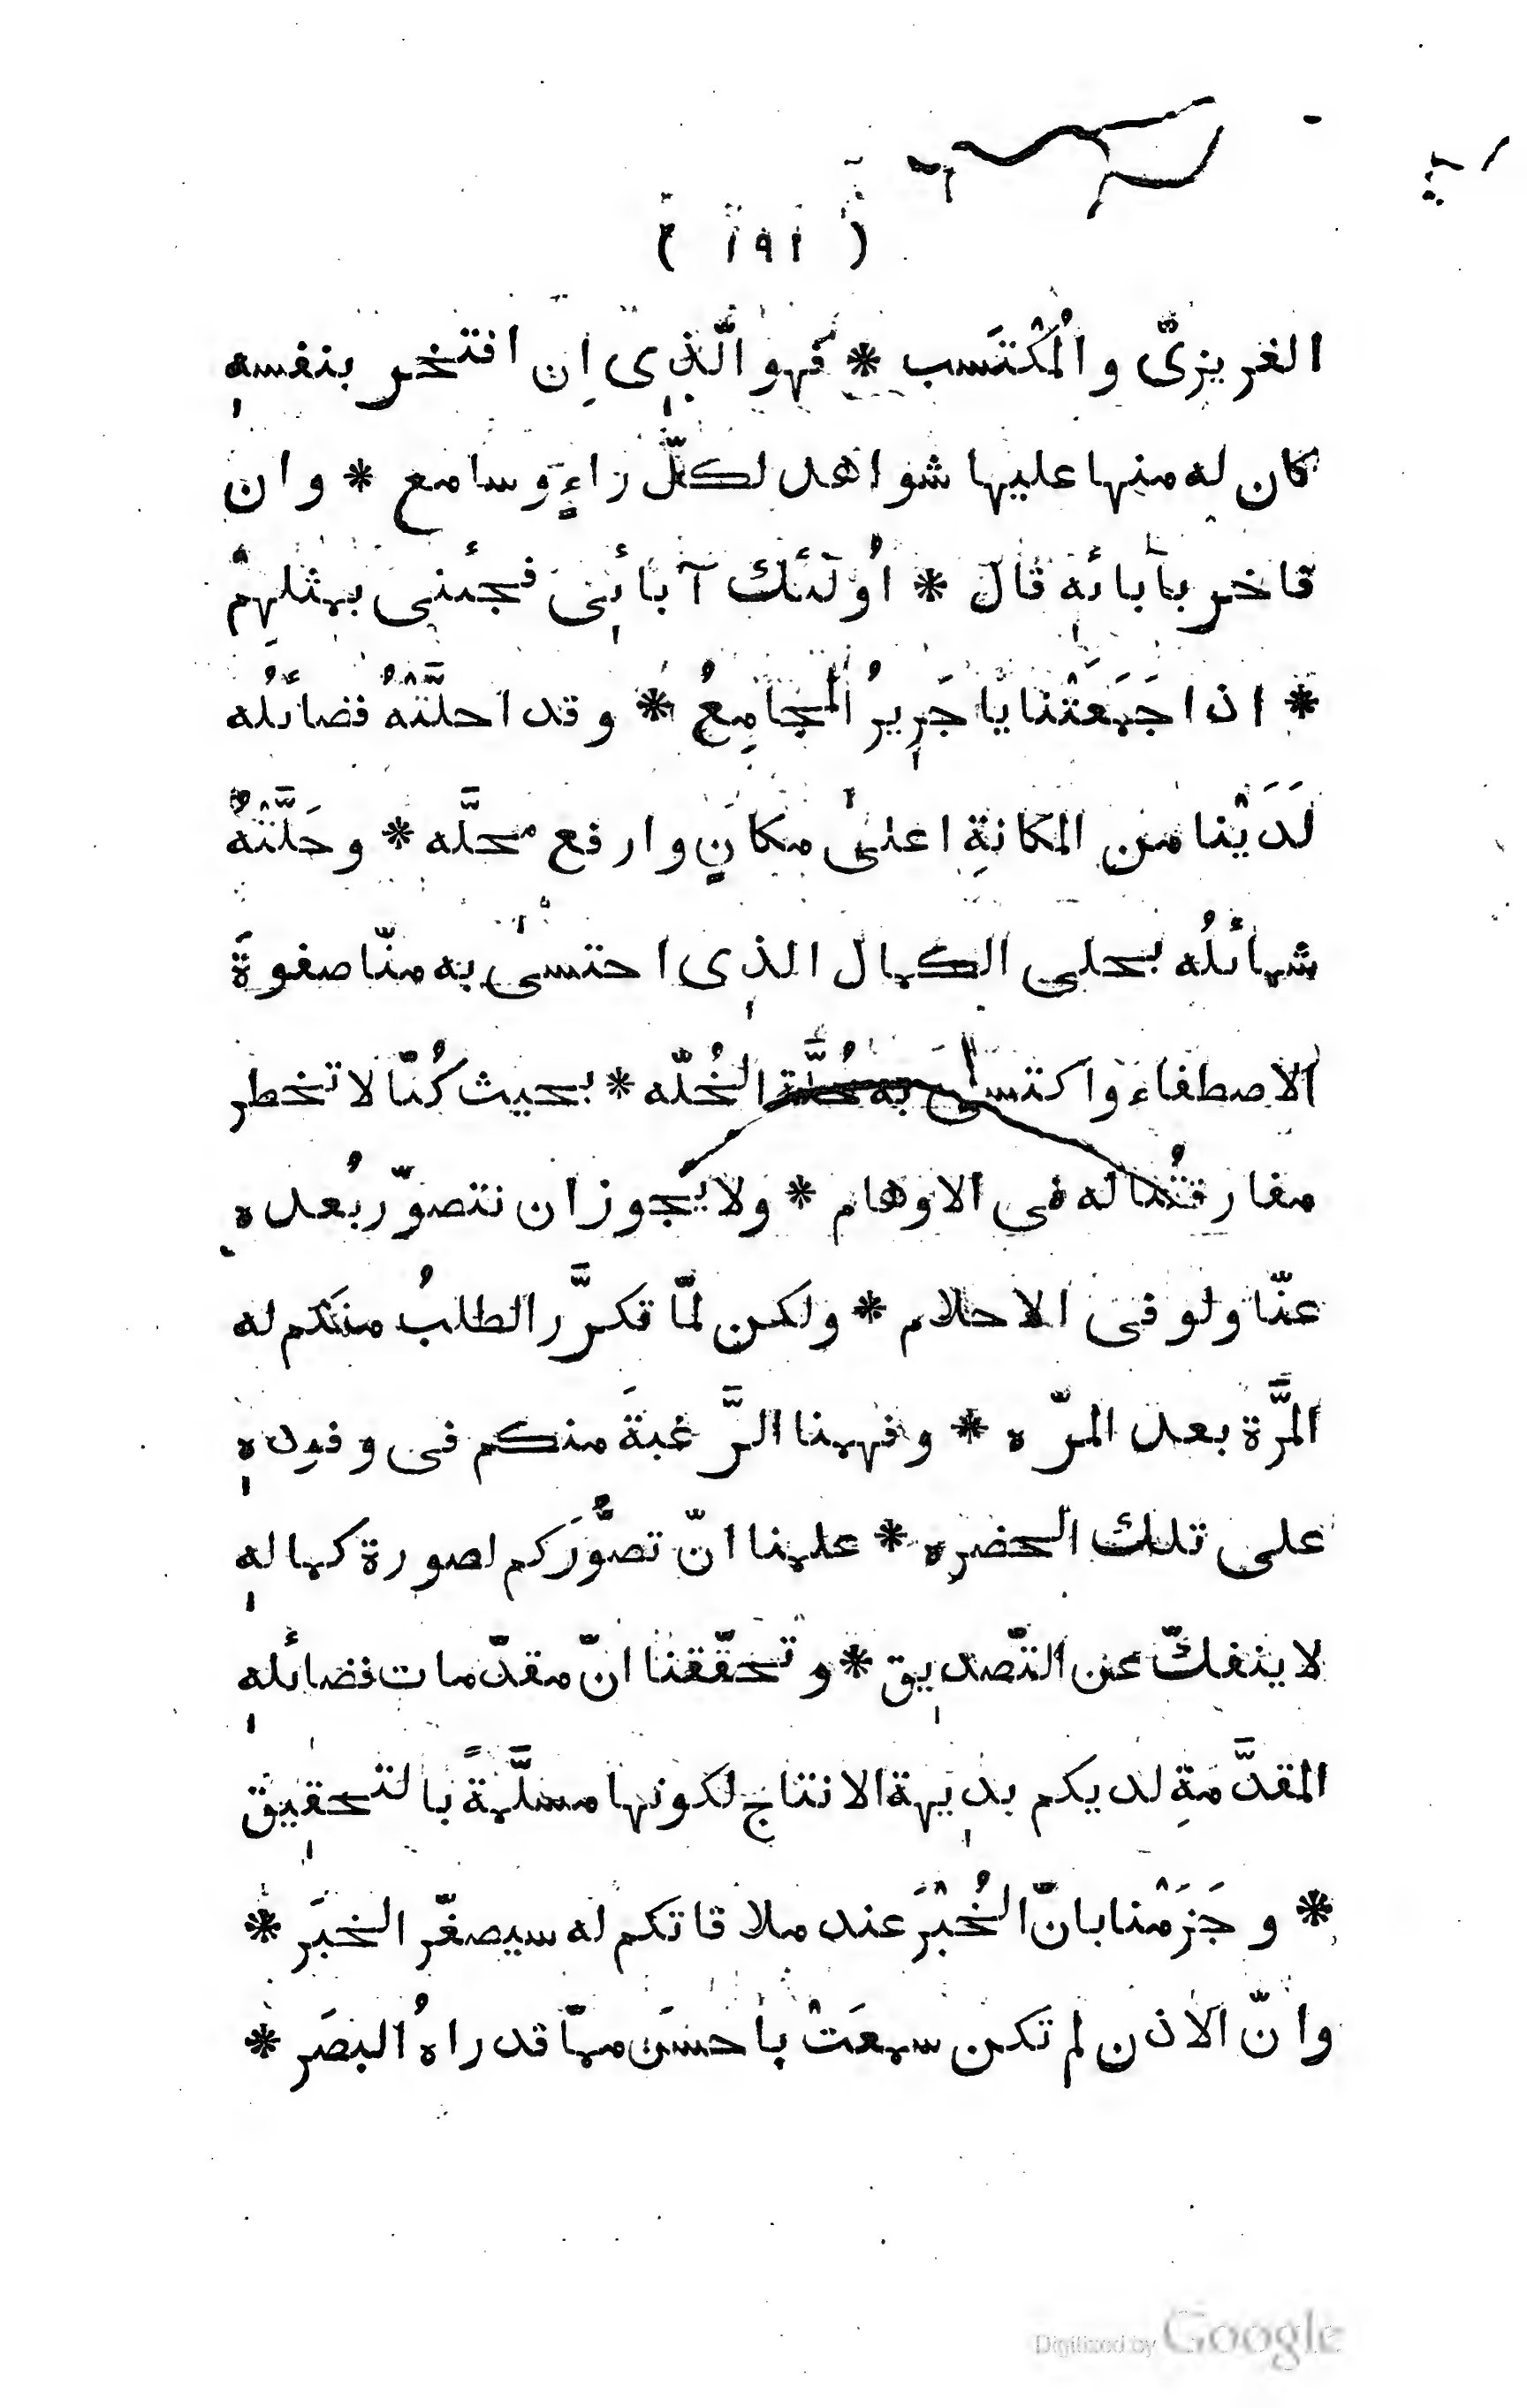 ( ١٩١ )
الغريزىّ والمُكْتَسب * فهو الّذِى اِن افتخر بنفسهِ
كان له منها عليها شواهد لكلّ راءٍ وسامع * وان
فاخر بآبائه قال * اُولئك آبائِى فجئنى بمثلهِمْ
* اذا جَمَعَتْنا يا جَرِيرُ المجامِعُ * وقد احلّتْهُ فضائلُه
لَدَيْنا من المكانةِ اعلىٰ مكانٍ وارفع محلَّه * وحَلَّتْهُ
شمائلُه بحلى الكمال الذِى احتسىٰ به منّا صفوةَ
الاصطفاء واكتسىٰ به حُلَّة الخُلّه * بحيث كُنّا لا تخطر
مفارقتُنا له فى الاوهام * ولا يجوز ان نتصوّر بُعده
عنّا ولو فى الاحلام * ولكن لمّا تكرَّر الطلبُ منكم له
المرَّة بعد المرّه * وفهمنا الرَّغبةَ منكم فى وفودِهِ
على تلك الحضره * علمنا انّ تصوُّرَكم لصورة كمالهِ
لا ينفكّ عن التّصدِيق * وتحقّقنا انّ مقدّمات فضائلهِ
المقدَّمةِ لديكم بدِيهة الانتاج لكونها مسلَّمةً بالتحقِيق
* وجَزَمْنا بانّ الخُبْرَ عند ملاقاتكم له سيصغّر الخبَر *
وانّ الاذن لم تكن سمعَتْ باحسَن ممّا قد راهُ البصَر *
Digitized by Google